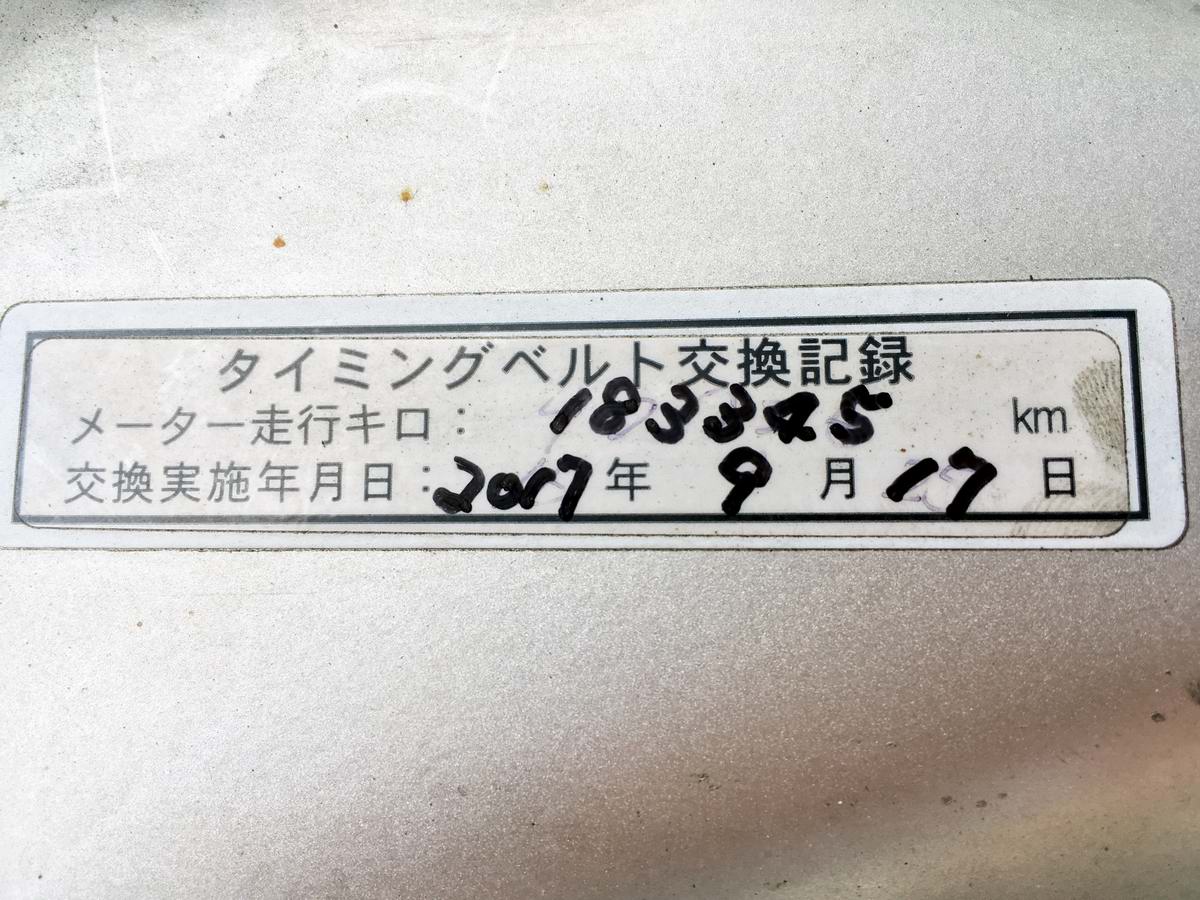 タイミングベルト交換記録
メーター走行キロ： 183345 km
交換実施年月日： 2017 年 9 月 17 日